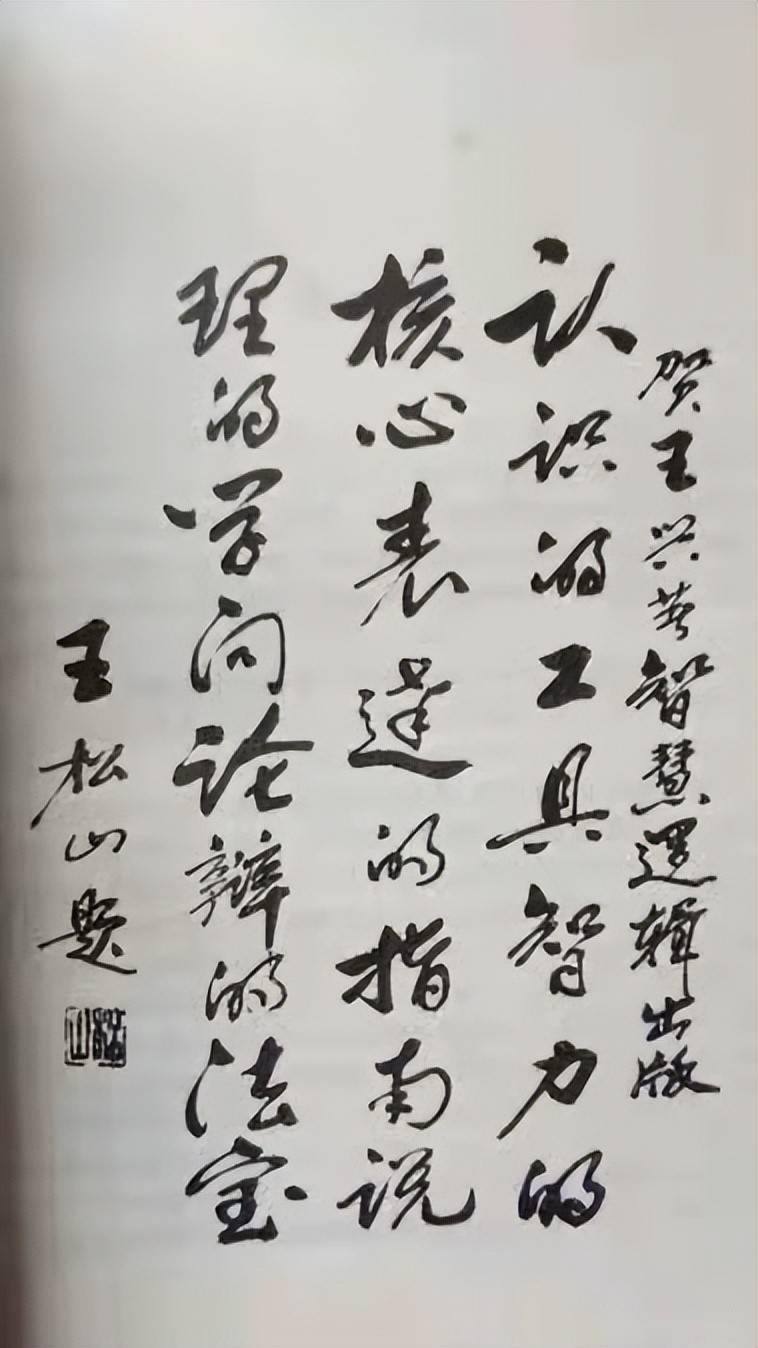 贺王兴芳智慧逻辑出版
认识的工具智力的
核心表达的指南说
理的学问论辩的法宝
王松山题